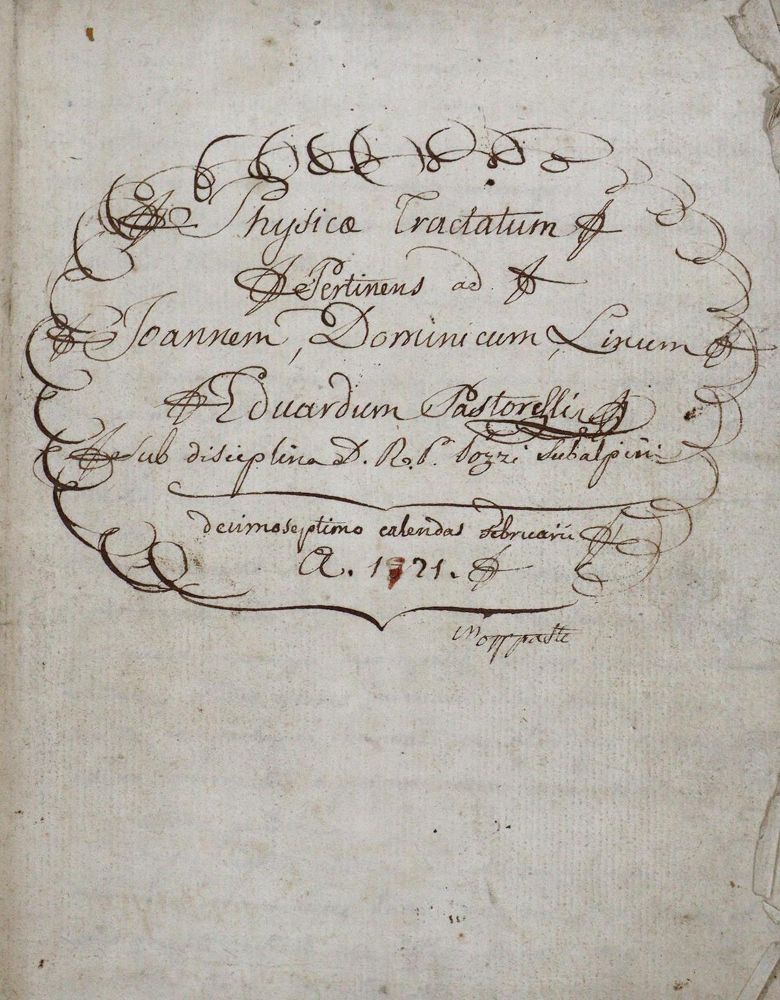 Physicæ Tractatum
Pertinens ad
Joannem, Dominicum, Linum
Eduardum Pastorelli
sub disciplina D. R. P. Pozzi Subalpini
decimoseptimo calendas februarii
A. 1721.